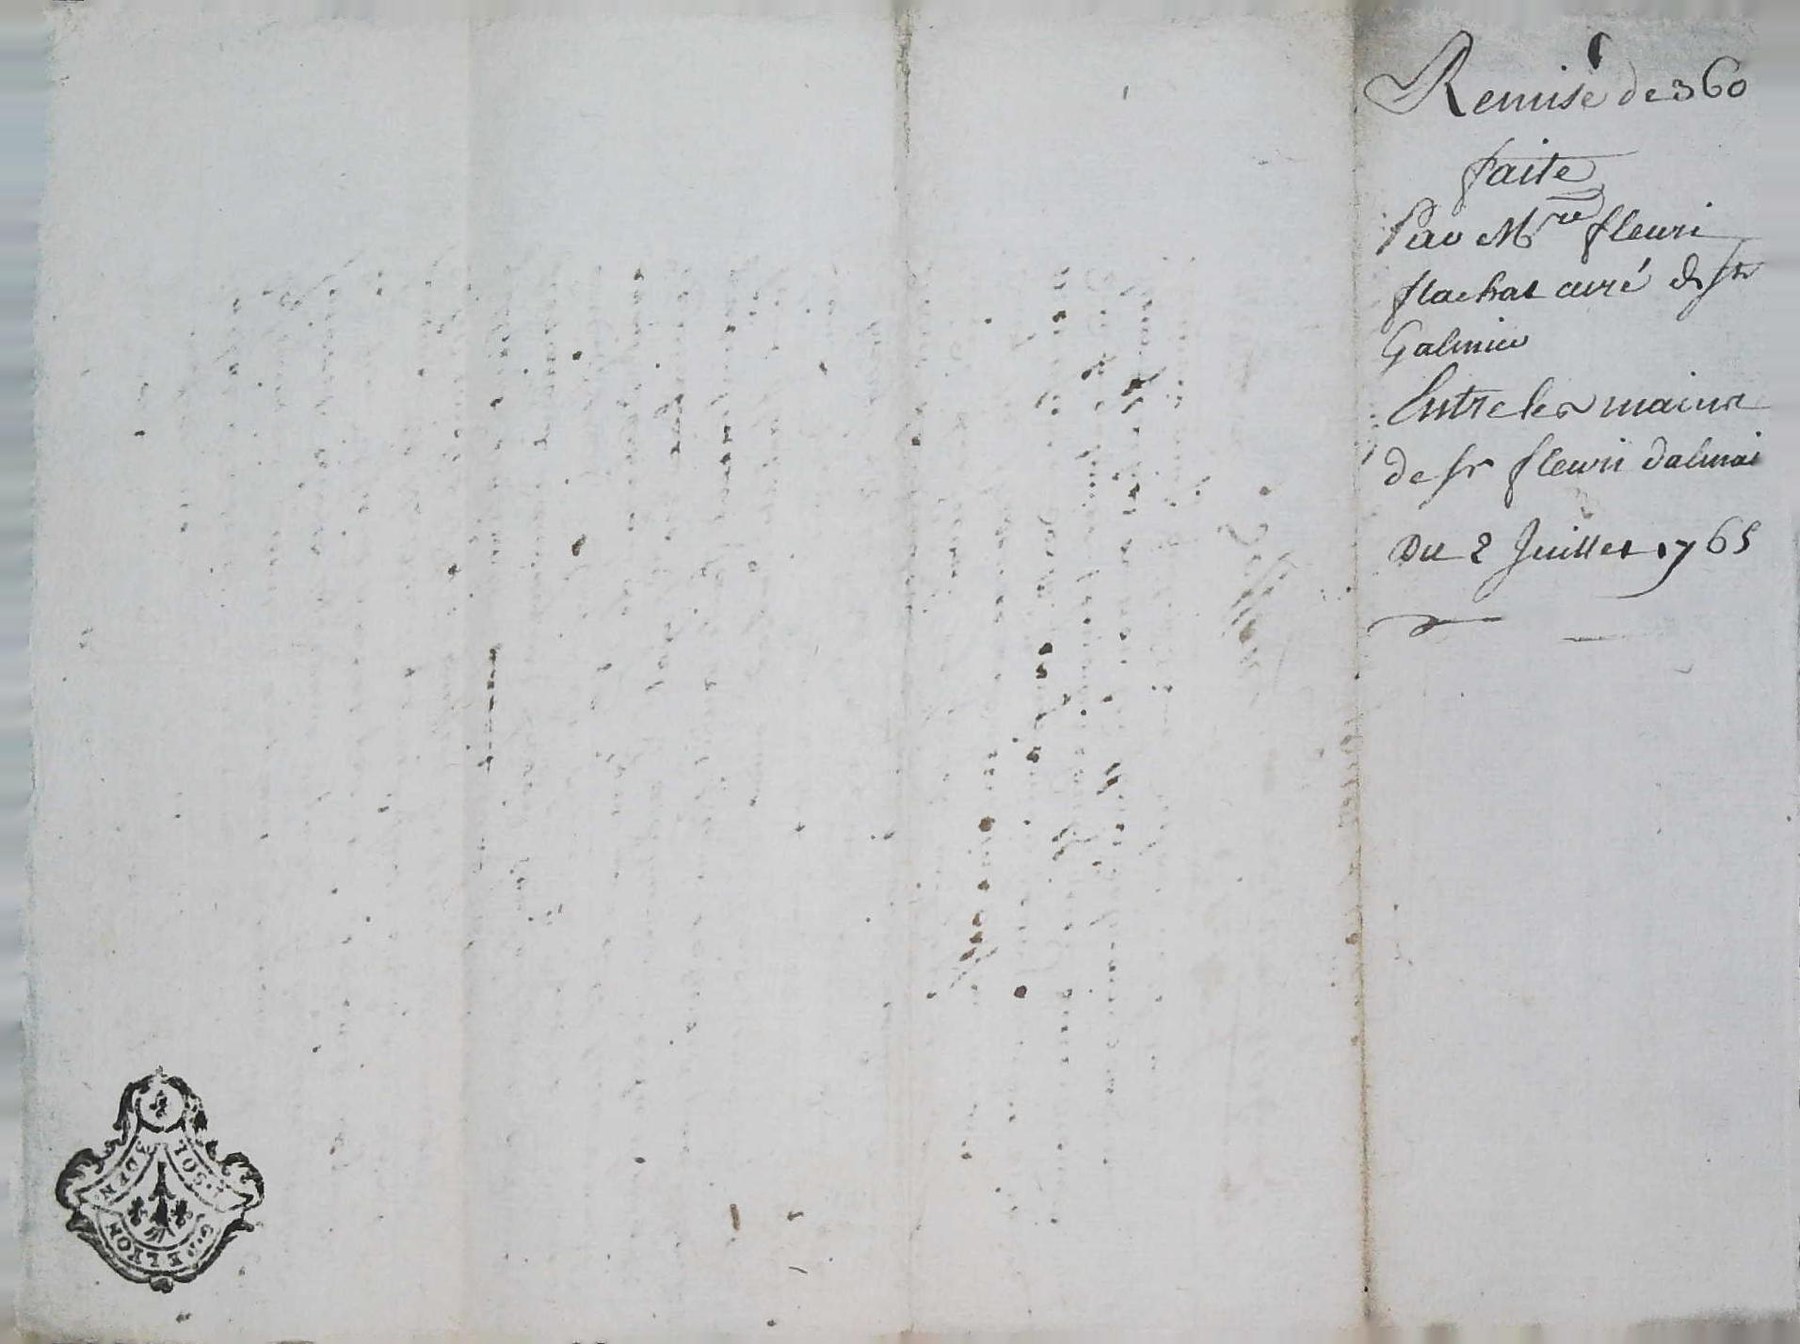 Remise de 360
faite
Par Mre fleuri
flachat curé de St
Galmier
Entre les mains
de sr fleuri dalmai
Du 2 Juillet 1765
1. SOL. 3. DEN
GEN DE LYON